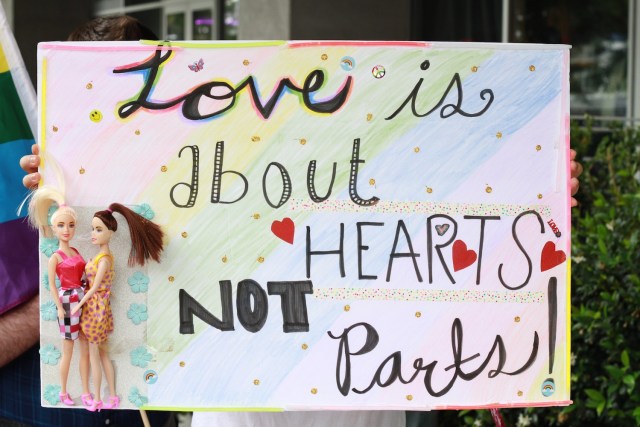 Love is
about
HEARTS
NOT
Parts!